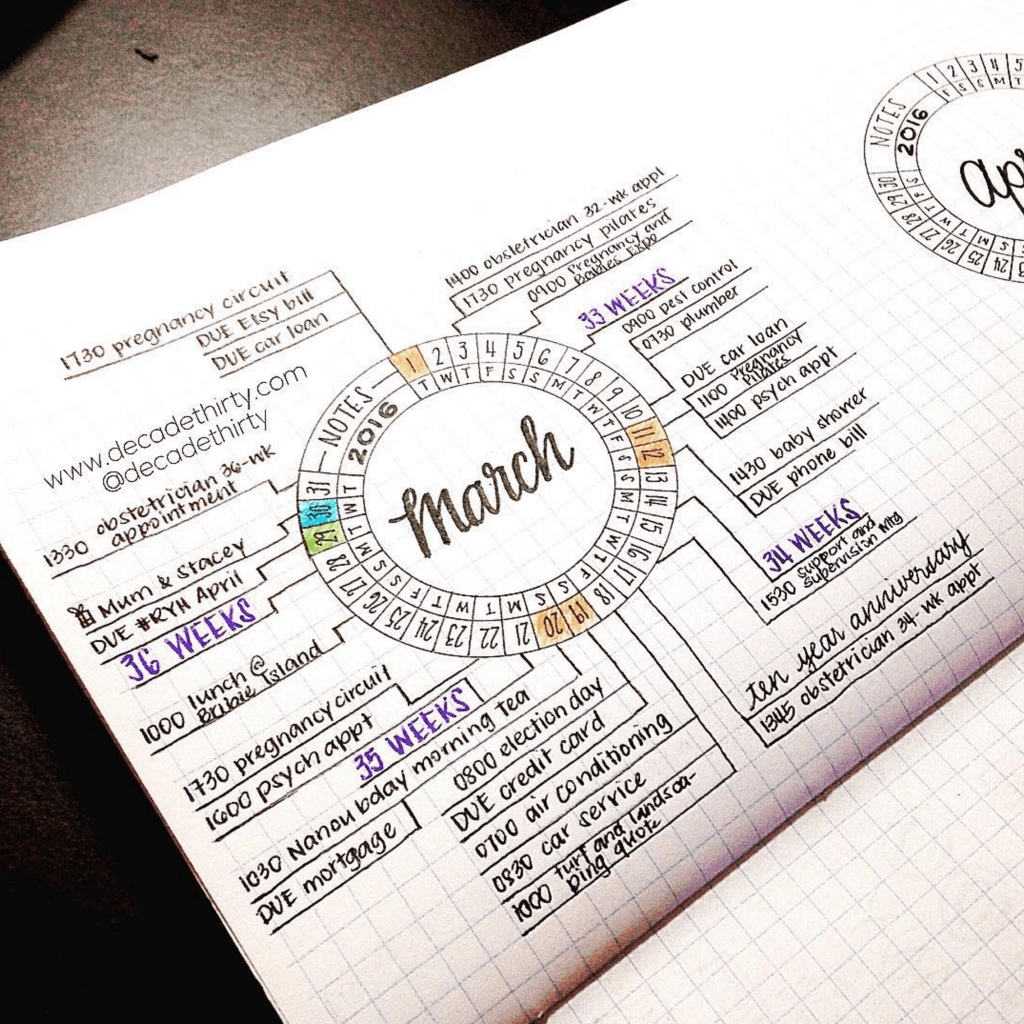 1730 pregnancy circuit
DUE Etsy bill
DUE car loan
www.decadethirty.com
@decadethirty
1330 obstetrician 36-wk
appointment
Mum & Stacey
DUE #RYH April
36 WEEKS
1000 lunch @
Bribie Island
1730 pregnancy circuit
1600 psych appt
35 WEEKS
1030 Nanou bday morning tea
DUE mortgage
0800 election day
DUE credit card
0700 air conditioning
0830 car service
1000 turf and landsca-
ping quote
1400 obstetrician 32-wk appt
1730 pregnancy pilates
0900 Pregnancy and
Babies Expo
33 WEEKS
0900 pest control
0730 plumber
DUE car loan
1100 Pregnancy
Pilates
1400 psych appt
1430 baby shower
DUE phone bill
34 WEEKS
1530 support and
supervision mtg
ten year anniversary
1345 obstetrician 34-wk appt
NOTES
2016
1 2 3 4 5 6 7 8 9 10 11 12 13 14 15 16 17 18 19 20 21 22 23 24 25 26 27 28 29 30 31
T W T F S S M T W T F S S M T W T F S S M T W T F S S M T W T
march
NOTES
2016
1 2 3 4 5
F S S M T
24 25 26 27 28 29 30
S M T W T F S
apr